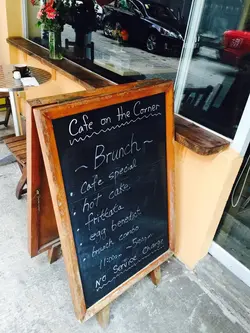 Cafe on the Corner
~ Brunch ~
• Cafe special
• hot cake
• frittata
• egg benedict
• brunch combo
11:00am - 5:00pm
No Service Charge